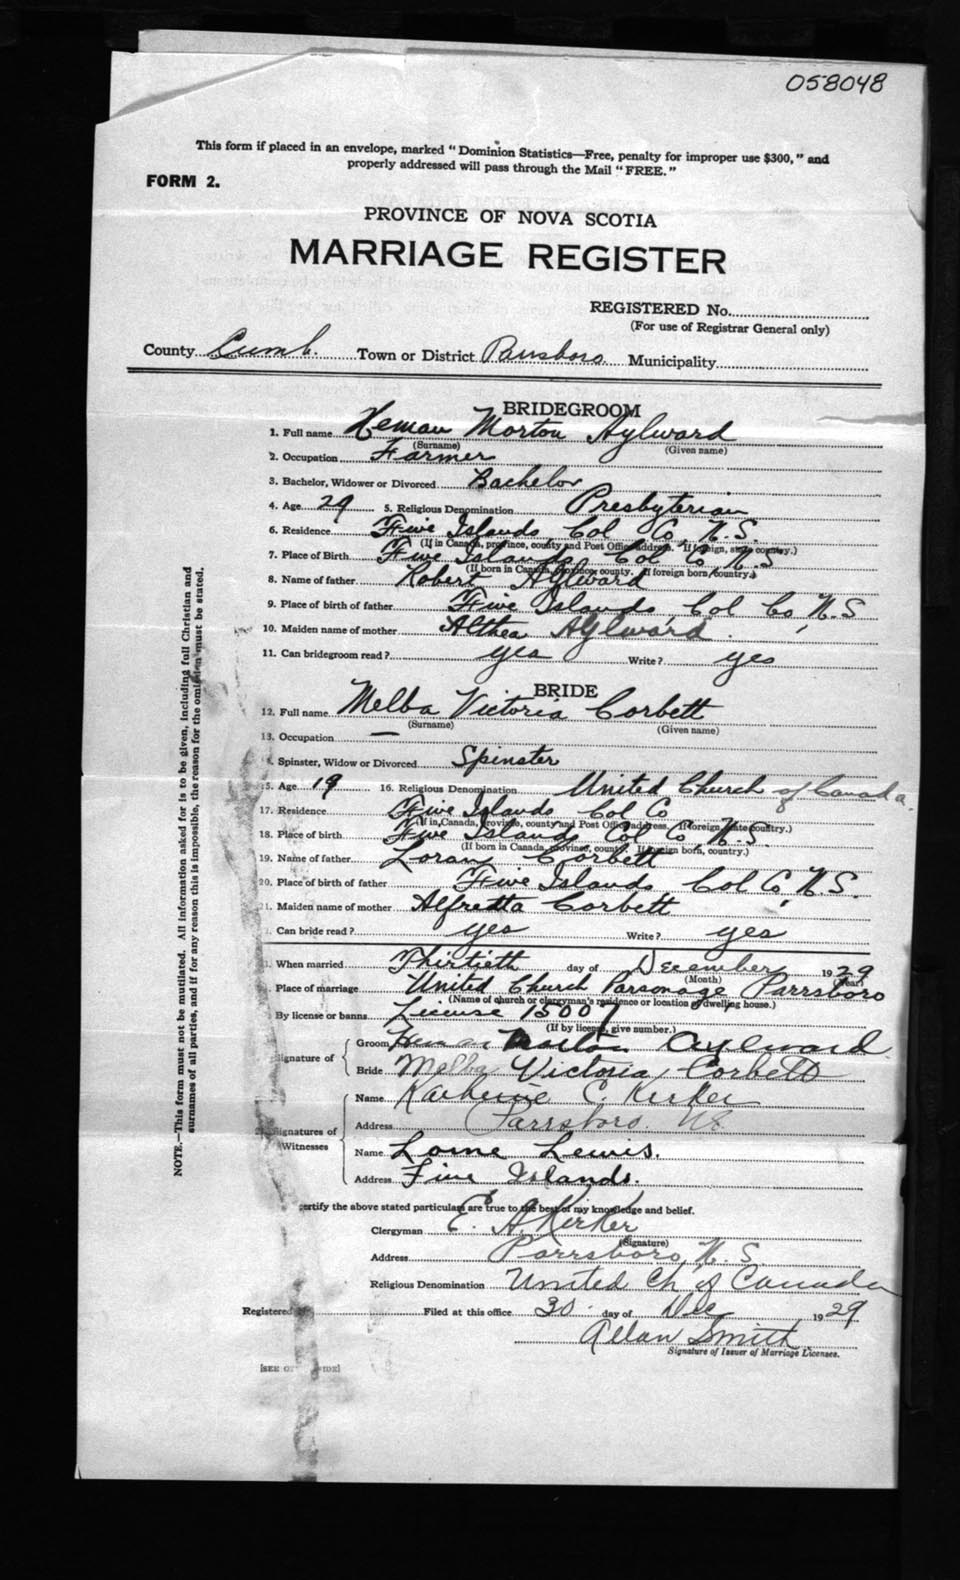 058048
This form if placed in an envelope, marked "Dominion Statistics—Free, penalty for improper use $300," and
properly addressed will pass through the Mail "FREE."
FORM 2.
PROVINCE OF NOVA SCOTIA
MARRIAGE REGISTER
REGISTERED No.
(For use of Registrar General only)
County Cumb. Town or District Parrsboro Municipality
BRIDEGROOM
1. Full name Heman Morton Aylward
(Surname) (Given name)
2. Occupation Farmer
3. Bachelor, Widower or Divorced Bachelor
4. Age 29 5. Religious Denomination Presbyterian
6. Residence Five Islands, Col Co, N.S.
(If in Canada, province, county and Post Office address. If foreign, state country.)
7. Place of Birth Five Islands, Col Co, N.S
(If born in Canada, province, county, If foreign born, country.)
8. Name of father Robert Aylward
9. Place of birth of father Five Islands, Col Co, N.S
10. Maiden name of mother Althea Aylward.
11. Can bridegroom read? yea Write? yes
BRIDE
12. Full name Melba Victoria Corbett
(Surname) (Given name)
13. Occupation —
Spinster, Widow or Divorced Spinster
15. Age 19 16. Religious Denomination United Church of Canada.
17. Residence Five Islands Col Co
(If in Canada, province, county and Post Office address. If foreign, state country.)
18. Place of birth Five Islands Col Co, N.S.
(If born in Canada, province, county. If foreign born, country.)
19. Name of father Loran Corbett
20. Place of birth of father Five Islands, Col Co, N.S.
21. Maiden name of mother Alfretta Corbett
Can bride read? yes Write? yes
When married Thirtieth day of December 1929
(Month) (Year)
Place of marriage United Church Parsonage Parrsboro
(Name of church or clergyman's residence or location of dwelling house.)
By license or banns License 15007
(If by license, give number.)
Signature of
Groom Heman Morton Aylward
Bride Melba Victoria Corbett
Signatures of
Witnesses
Name Katherine C. Kirker
Address Parrsboro. NS
Name Lorne Lewis.
Address Five Islands.
certify the above stated particulars are true to the best of my knowledge and belief.
Clergyman E. A. Kirker
(Signature)
Address Parrsboro, N.S.
Religious Denomination United Ch. of Canada
Registered Filed at this office 30 day of Dec 1929
Allan Smith
Signature of Issuer of Marriage Licenses.
NOTE.—This form must not be mutilated. All information asked for is to be given, including full Christian and
surnames of all parties, and if for any reason this is impossible, the reason for the omission must be stated.